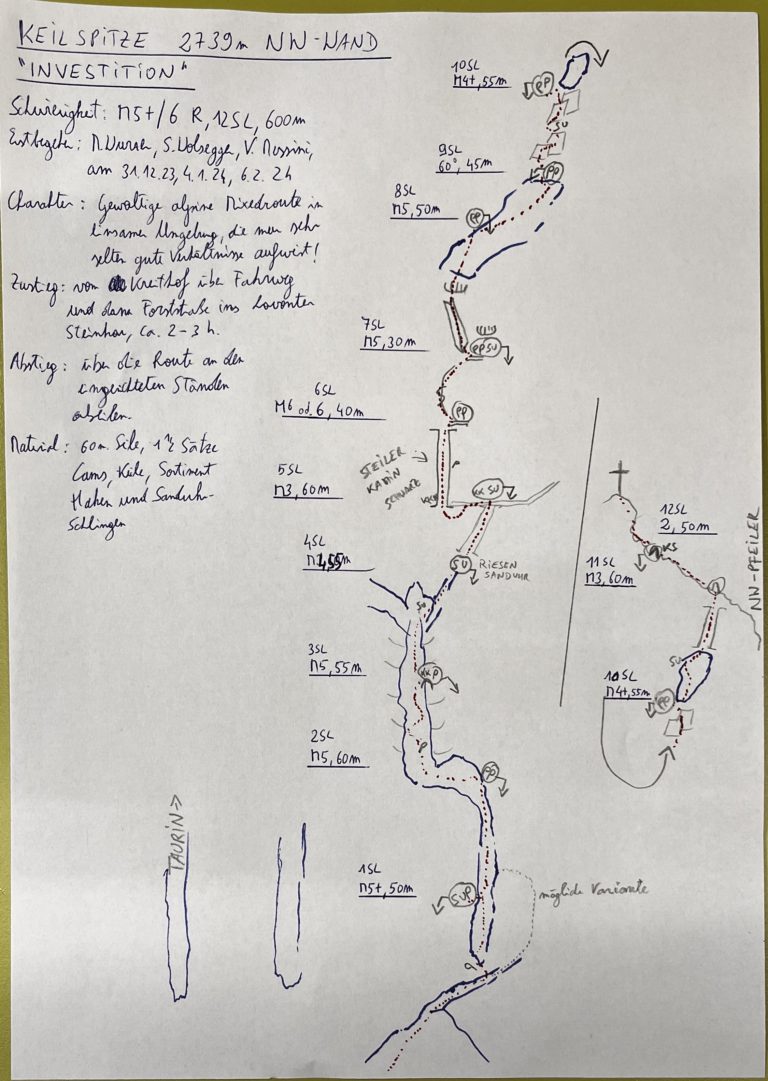 KEILSPITZE 2739m NW-WAND
"INVESTITION"
Schwierigkeit: M5+/6 R, 12SL, 600m
Erstbegeher: M. Wurzer, S. Wolsegger, V. Messini,
am 31.12.23, 4.1.24, 6.2.24
Charakter: Gewaltige alpine Mixedroute in
einsamer Umgebung, die man sehr
selten gute Verhältnisse aufwirft!
Zustieg: vom Kreithof über Fahrweg
und dann Forststraße ins Lavanter
Steinkar, ca. 2-3 h.
Abstieg: über die Route an den
eingerichteten Ständen
abseilen.
Material: 60m Seile, 1 1/2 Sätze
Cams, Keile, Sortiment
Haken und Sanduhr-
Schlingen
10SL
M4+, 55m
PP
SU
9SL
60°, 45m
PP
8SL
M5, 50m
PP
7SL
M5, 30m
PP SU
6SL
M6 od. 6, 40m
PP
STEILER
KAMIN
SCHWARZ
P
5SL
M3, 60m
XX SU
4SL
55m
SU
RIESEN
SANDUHR
SU
3SL
M5, 55m
XX P
2SL
M5, 60m
P
PP
1SL
M5+, 50m
SUP
mögliche Variante
TAURIN >>
12SL
2, 50m
KS
11SL
M3, 60m
NW-PFEILER
SU
10SL
M4+, 55m
PP